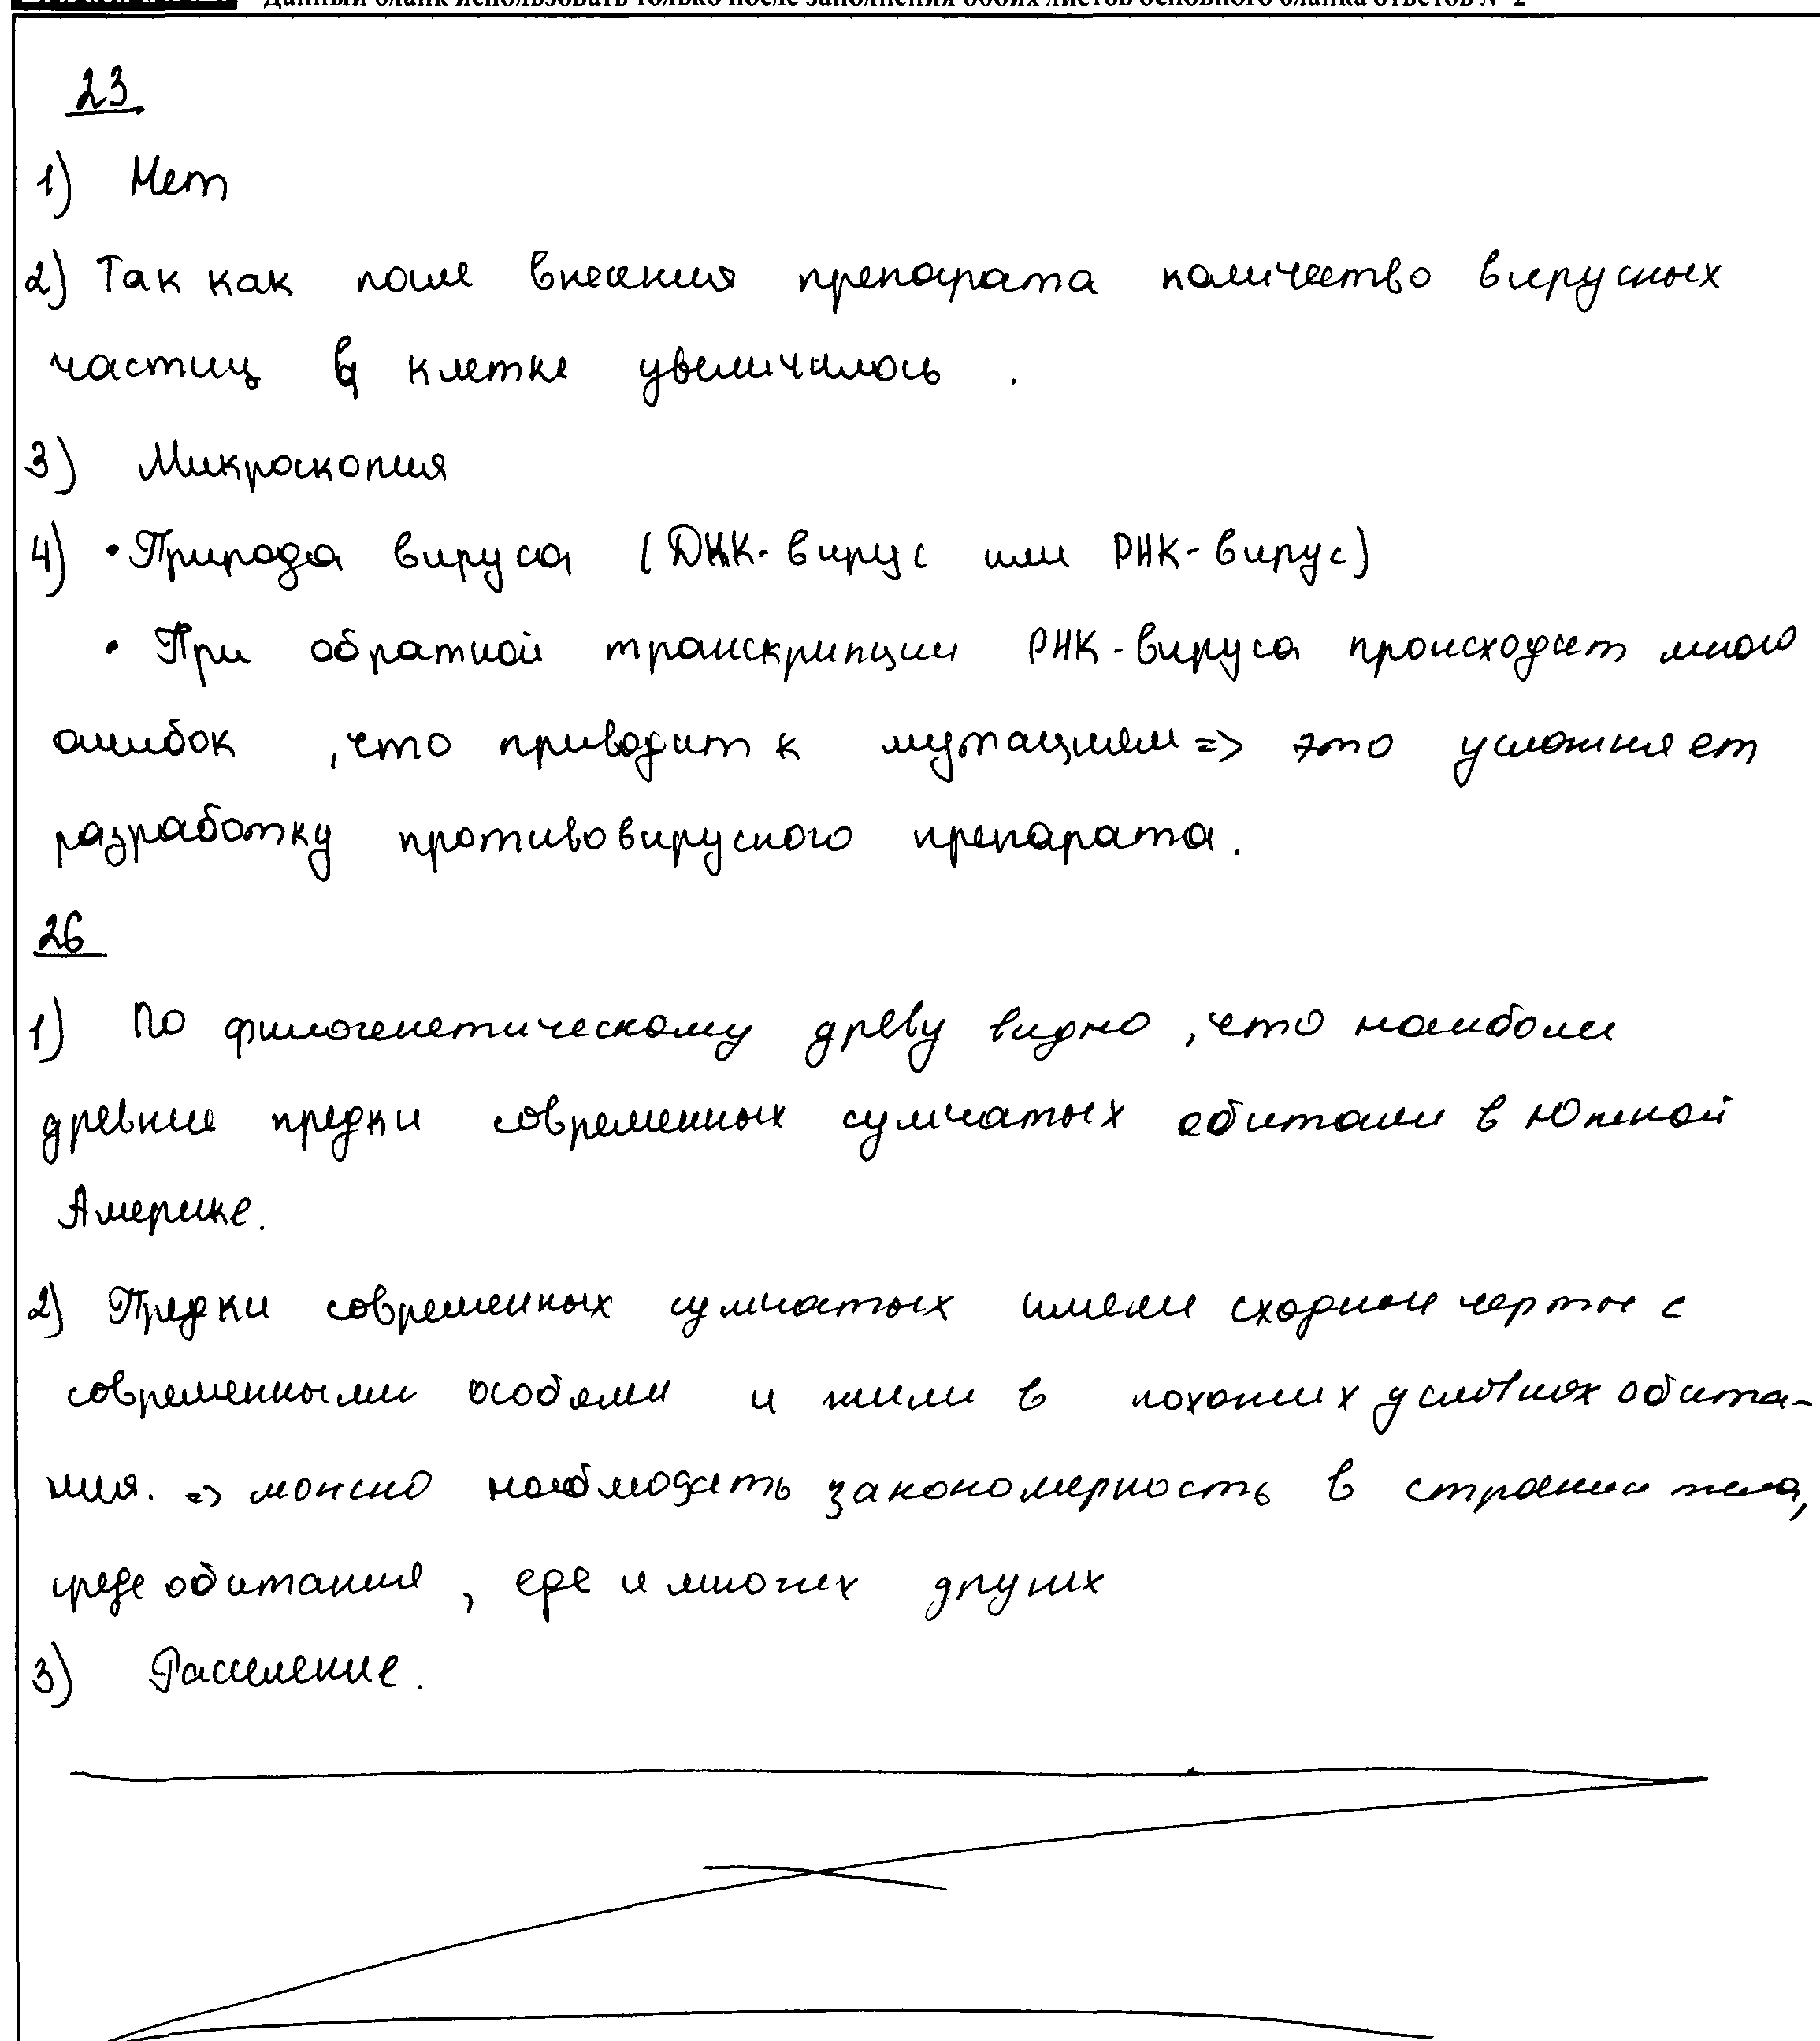 Данный бланк использовать только после заполнения обоих листов основного бланка ответов № 2
23
1) Нет
2) Так как после внесения препарата количество вирусных
частиц в клетке увеличилось.
3) Микроскопия
4) • Природа вируса (ДНК-вирус или РНК-вирус)
• При обратной транскрипции РНК-вируса происходит много
ошибок, что приводит к мутациям => это усложняет
разработку противовирусного препарата.
26
1) По филогенетическому древу видно, что наиболее
древние предки современных сумчатых обитали в Южной
Америке.
2) Предки современных сумчатых имели сходные черты с
современными особями и жили в похожих условиях обита-
ния. => можно наблюдать закономерность в строении тела,
среде обитания, еде и многих других
3) Расселение.